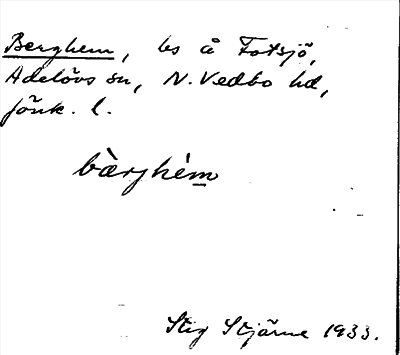 Berghem, ls å Fotsjö,
Adelövs sn, N. Vedbo hd,
Jönk. l.
bàrghém
Stig Stjärne 1933.